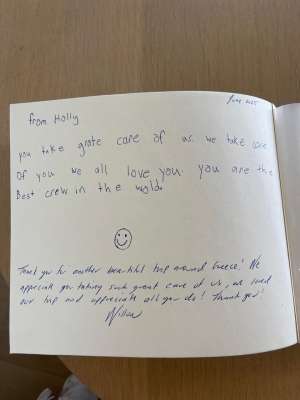 June 2025
from Holly
you take grate care of us. we take care
of you we all love you. you are the
Best crew in the wold.
Thank you for another beautiful trip around Greece! We
appreciate you taking such great care of us, we loved
our trip and appreciate all you do! Thank you!